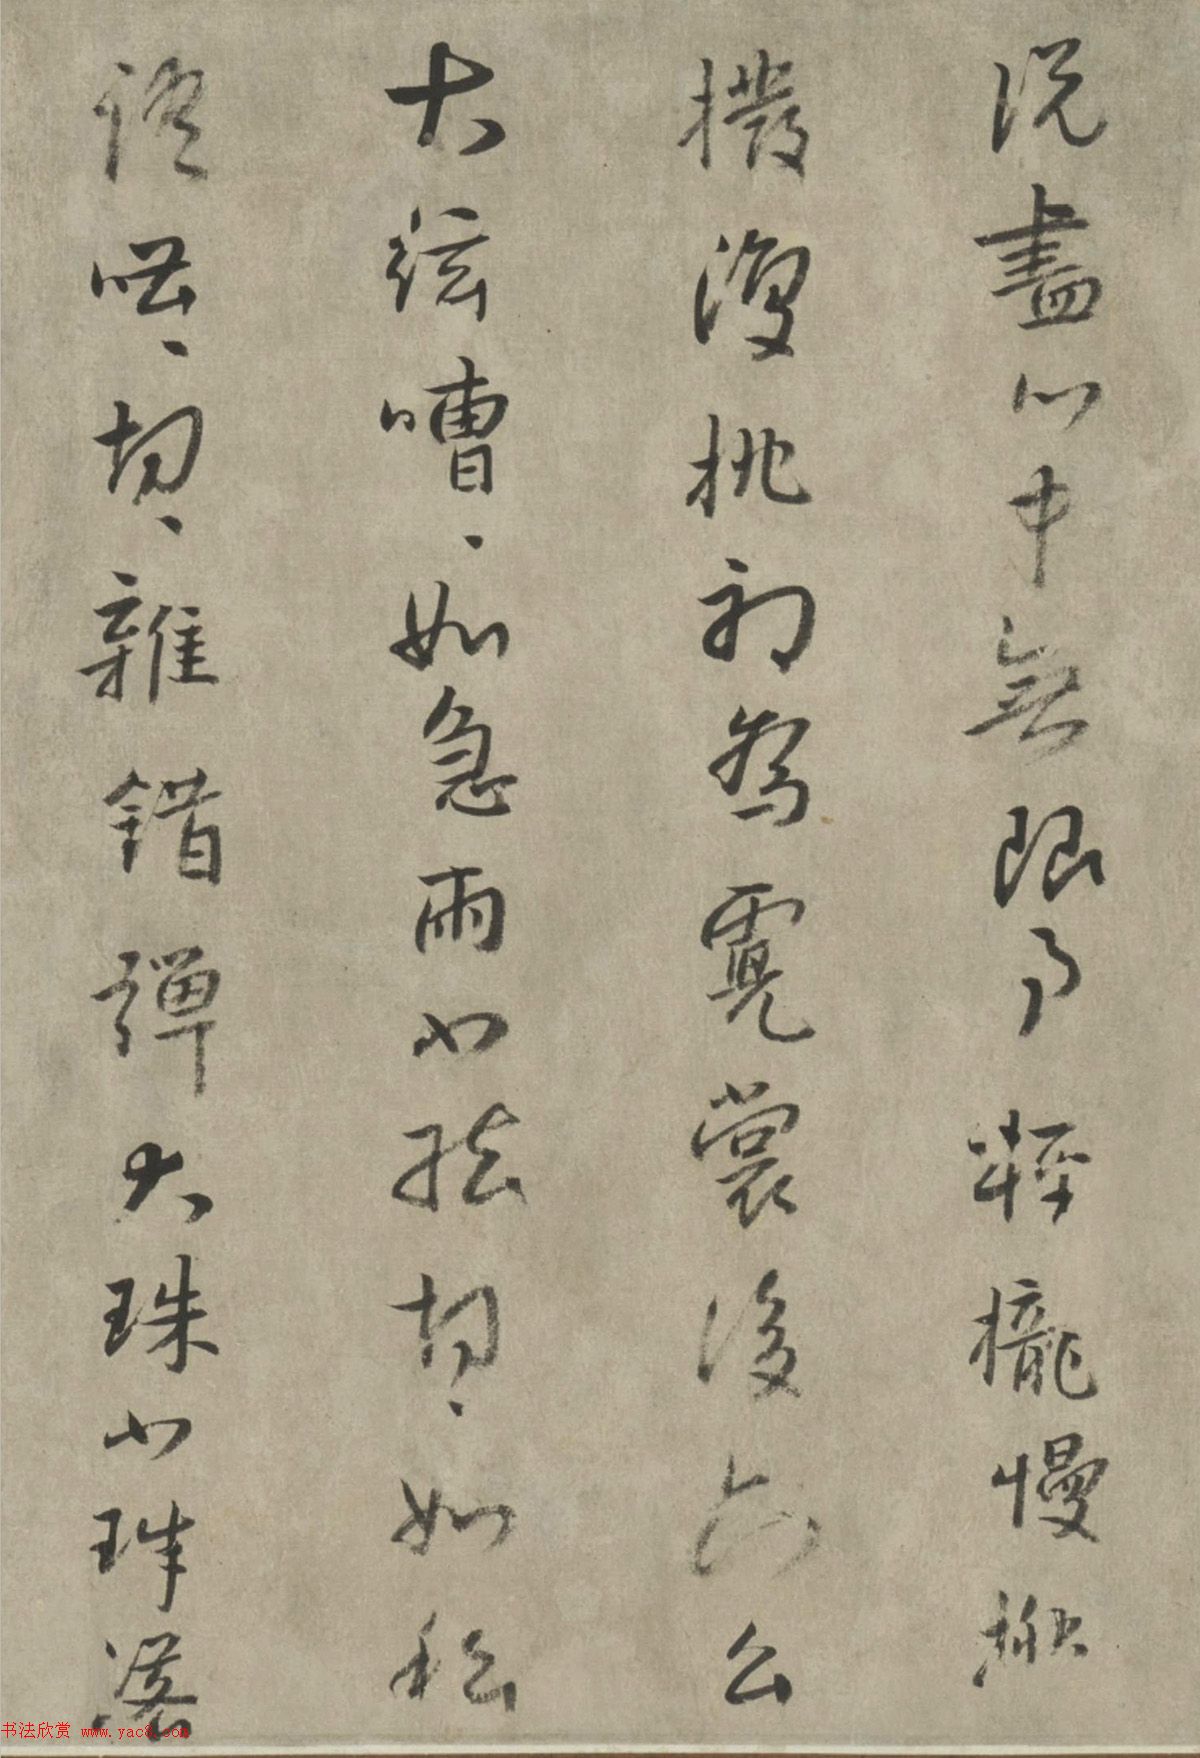 说盡心中無限事輕攏慢撚
撥復挑初為霓裳後六么
大絃嘈、如急雨小絃切、如私
語嘈、切、雜錯彈大珠小珠落
书法欣赏 www.yac8.com